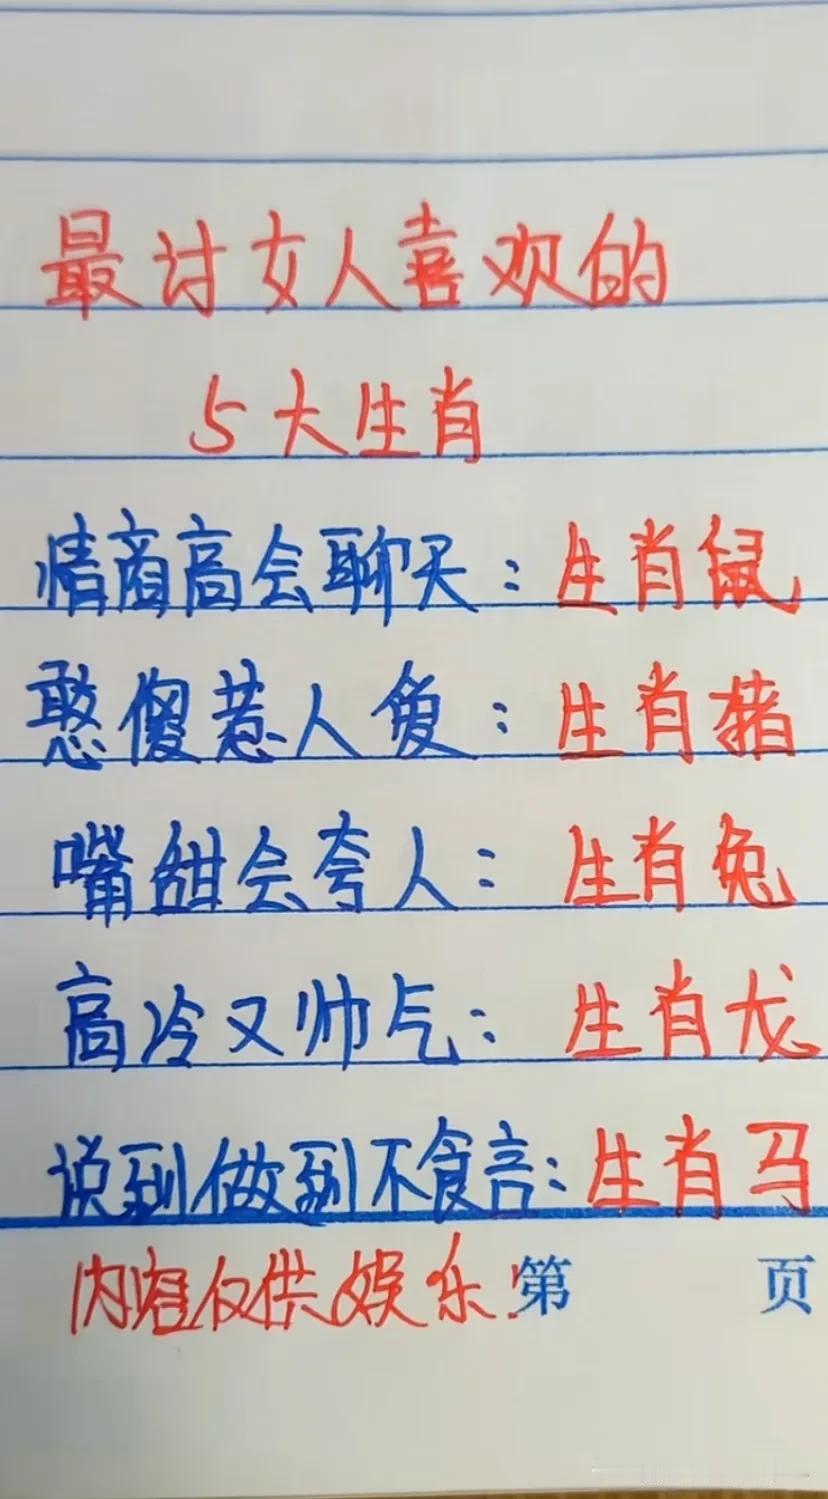 最讨女人喜欢的
5大生肖
情商高会聊天：生肖鼠
憨傻惹人爱：生肖猪
嘴甜会夸人：生肖兔
高冷又帅气：生肖龙
说到做到不食言：生肖马
内容仅供娱乐！第 页